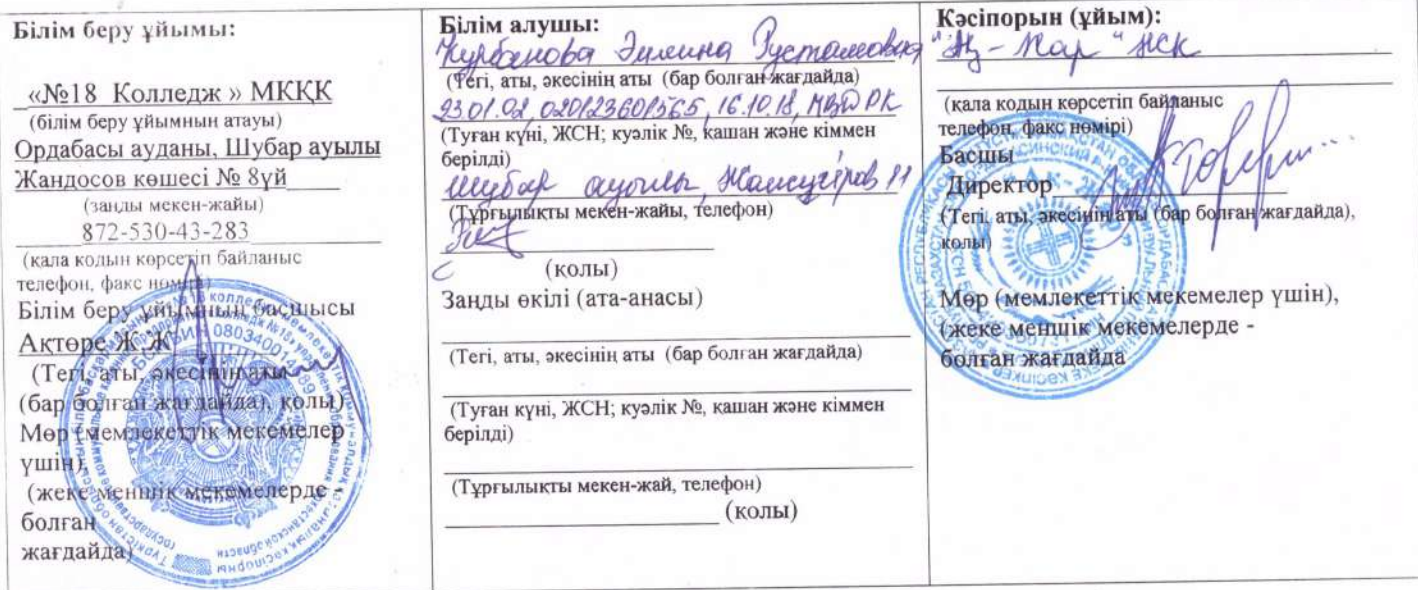 Білім беру ұйымы:
«№18 Колледж » МКҚК
(білім беру ұйымнын атауы)
Ордабасы ауданы, Шубар ауылы
Жандосов көшесі № 8үй
(заңды мекен-жайы)
872-530-43-283
(қала кодын көрсетіп байланыс
телефон, факс нөмірі)
Білім беру ұйымның басшысы
Ақтөре Ж.Ж
(Тегі, аты, әкесінің аты
(бар болған жағдайда), қолы)
Мөр (мемлекеттік мекемелер
үшін),
(жеке меншік мекемелерде -
болған
жағдайда)
Білім алушы:
Курбанова Рустамовна
(Тегі, аты, әкесінің аты (бар болған жағдайда)
23.01.02, 020123601565, 16.10.18, МВД РК
(Туған күні, ЖСН; куәлік №, қашан және кіммен
берілді)
Шубар ауылы, Жансугіров 11
(Тұрғылықты мекен-жайы, телефон)
(қолы)
Заңды өкілі (ата-анасы)
(Тегі, аты, әкесінің аты (бар болған жағдайда)
(Туған күні, ЖСН; куәлік №, қашан және кіммен
берілді)
(Тұрғылықты мекен-жай, телефон)
(қолы)
Кәсіпорын (ұйым):
ЖСК
(қала кодын көрсетіп байланыс
телефон, факс нөмірі)
Басшы
Директор
(Тегі, аты, әкесінің аты (бар болған жағдайда),
қолы)
Мөр (мемлекеттік мекемелер үшін),
(жеке меншік мекемелерде -
болған жағдайда